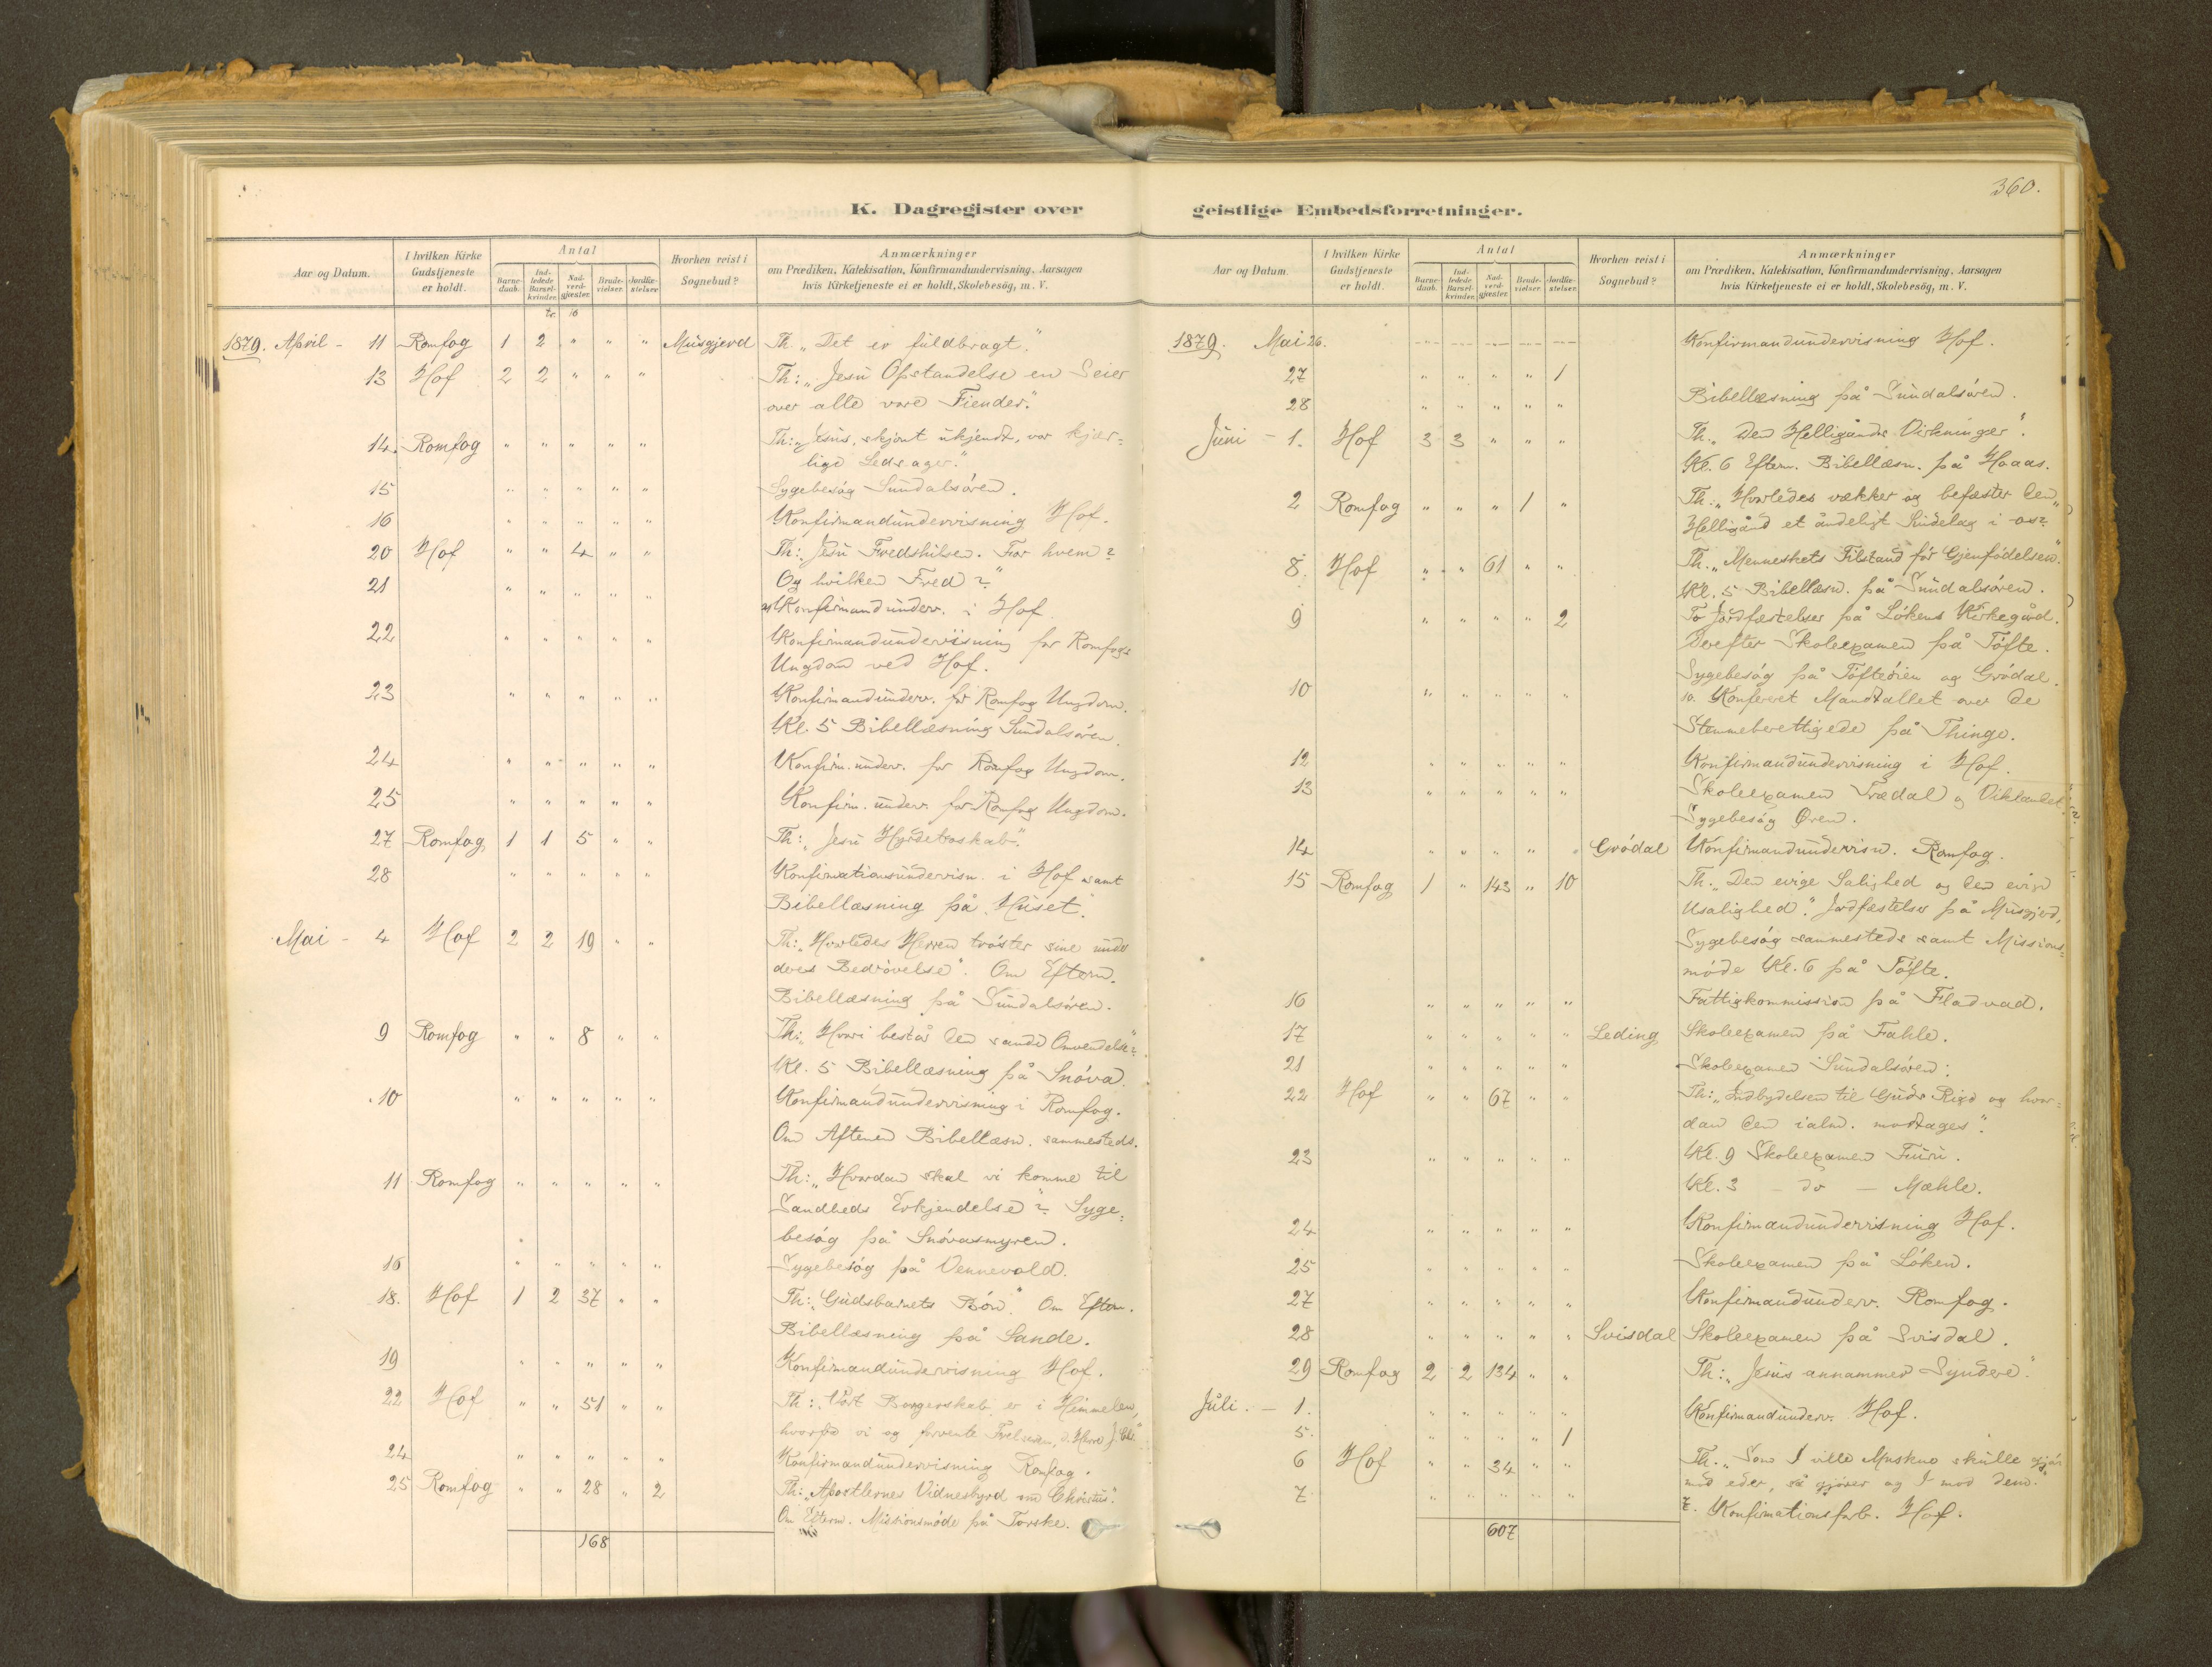 K. Dagregister over
Aar og Datum.
I hvilken Kirke Gudstjeneste er holdt.
Antal
Barne-daab.
Ind-ledede Barsel-kvinder.
Nad-verd-gjæster.
Brude-vielser.
Jordfæ-stelser.
Hvorhen reist i Sognebud?
Anmærkninger
om Prædiken, Katekisation, Konfirmandundervisning, Aarsagen
hvis Kirketjeneste ei er holdt, Skolebesøg, m. V.
tr. 16
1879. April - 11 Romfog 1 2 " " " Musgjerd Th. „Det er fuldbragt."
13 Hof 2 2 " " " Th: „Jesu Opstandelse en Seier
over alle vore Fiender."
14. Romfog " " " " " Th: „Jesus, skjønt ukjendt, vor kjær=
lige Ledsager."
15 " " " " " Sygebesøg Sundalsøren.
16 " " " " " Konfirmandundervisning Hof.
20 Hof " " 4 " " Th: „Jesu Fredshilsen. For hvem?
Og hvilken Fred?"
21 " " " " " Konfirmandunderv. i Hof.
22 " " " " " Konfirmandundervisning for Romfogs
Ungdom ved Hof.
23 " " " " " Konfirmandunderv. for Romfog Ungdom.
Kl. 5 Bibellæsning Sundalsøren.
24 " " " " " Konfirm. underv. for Romfog Ungdom.
25 " " " " " Konfirm. underv. for Romfog Ungdom.
27 Romfog 1 1 5 " " Th: „Jesu Hyrdetroskab."
28 " " " " " Konfirmationsundervisn. i Hof samt
Bibellæsning på „Huset".
Mai - 4 Hof 2 2 19 " " Th: „Hvorledes Herren trøster sine under
deres Bedrøvelse". Om Efterm.
Bibellæsning på Sundalsøren.
9 Romfog " " 8 " " Th: „Hvori består den sande Omvendelse"?
Kl. 5 Bibellæsning på Snøva.
10 " " " " " Konfirmandundervisning i Romfog.
Om Aftenen Bibellæsn. sammesteds.
11 Romfog " " " " " Th: „Hvordan skal vi komme til
Sandheds Erkjendelse"? Syge=
besøg på Snøvasmyren.
16 " " " " " Sygebesøg på Vennevold.
18. Hof 1 2 37 " " Th: „Gudsbarnets Bøn". Om Efterm.
Bibellæsning på Sande.
19 " " " " " Konfirmandundervisning Hof.
22 Hof " " 51 " " Th: „Vårt Borgerskab er i Himmelen,
hvorfra vi og forvente Frelseren, d. Herre J. Chr."
24 " " " " " Konfirmandundervisning Romfog.
25 Romfog " " 28 " 2 Th: „Apostlernes Vidnesbyrd om Christus".
Om Efterm. Missionsmøde på Torske.
168
360.
geistlige Embedsforretninger.
Aar og Datum.
I hvilken Kirke Gudstjeneste er holdt.
Antal
Barne-daab.
Ind-ledede Barsel-kvinder.
Nad-verd-gjæster.
Brude-vielser.
Jordfæ-stelser.
Hvorhen reist i Sognebud?
Anmærkninger
om Prædiken, Katekisation, Konfirmandundervisning, Aarsagen
hvis Kirketjeneste ei er holdt, Skolebesøg, m. V.
1879. Mai 26. Konfirmandundervisning Hof.
27 " " " " 1
28 " " " " " Bibellæsning på Sundalsøren.
Juni - 1. Hof 3 3 " " " Th. „Den Helligånds Virkninger".
Kl. 6 Efterm. Bibellæsn. på Hoaas.
2 Romfog " " " 1 " Th: „Hvorledes vækker og befæster den
Helligånd et åndeligt Sindelag i os?"
8. Hof " " 61 " " Th. „Menneskets Tilstand før Gjenfødelsen."
Kl. 5 Bibellæsn. på Sundalsøren.
9 " " " " 2 To Jordfæstelser på Løkens Kirkegård.
Derefter Skoleexamen på Tøfte.
Sygebesøg på Tøfteøien og Grødal.
10 " " " " " 10. Konferert Mandtallet over de
Stemmeberettigede på Thinge.
12 " " " " " Konfirmandundervisning i Hof.
13 " " " " " Skoleexamen Trædal og Viklandet.
Sygebesøg Øren.
14 " " " " " Grødal Konfirmandundervisn. Romfog.
15 Romfog 1 " 143 " 10 Th: „Den evige Salighed og den evige
Usalighed." Jordfæstelser på Musgjerd,
Sygebesøg sammesteds samt Missions=
møde Kl. 6 på Tøfte.
16 " " " " " Fattigkommission på Fladvad.
17 " " " " " Leding Skoleexamen på Fahle.
21 " " " " " Skoleexamen i Sundalsøren.
22 Hof " " 67 " " Th: „Indbydelsen til Guds Rige og hvor=
dan den ialm. modtages".
23 " " " " " Kl. 9 Skoleexamen Furu.
Kl. 3 - do - Mæhle.
24 " " " " " Konfirmandundervisning Hof.
25 " " " " " Skoleexamen på Løken.
27 " " " " " Konfirmandunderv. Romfog.
28 " " " " " Svisdal Skoleexamen på Svisdal.
29 Romfog 2 2 134 " " Th: „Jesus annammer Syndere".
Juli. - 1. " " " " " Konfirmandunderv. Hof.
5. " " " " 1
6 Hof " " 34 " " Th. „Som I ville Mnskne skulle gjør
mod eder, så gjører og I mod dem."
7 " " " " " 7. Konfirmationsforb. Hof.
607